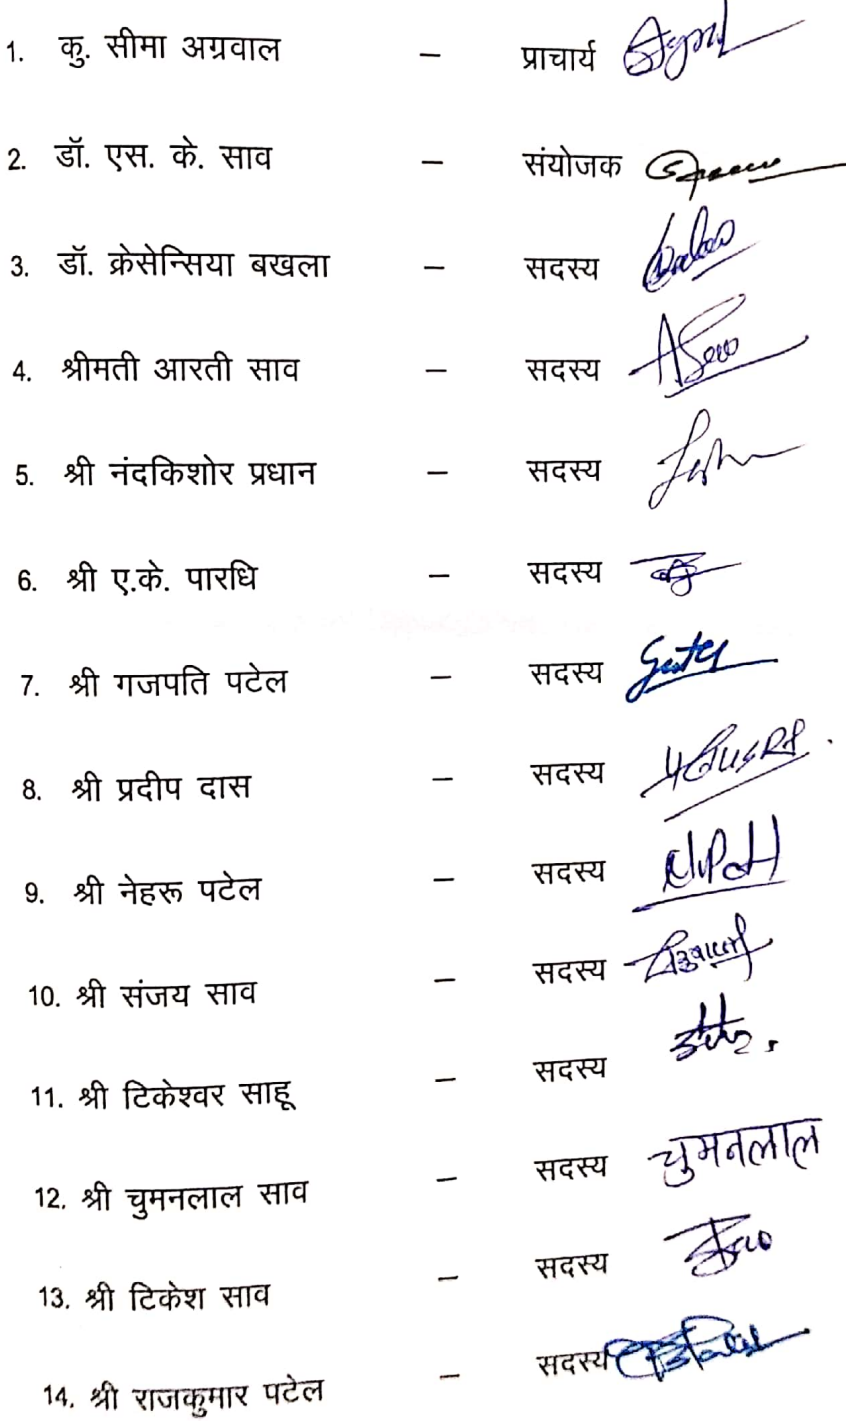 1. कु. सीमा अग्रवाल – प्राचार्य
2. डॉ. एस. के. साव – संयोजक
3. डॉ. क्रेसेन्सिया बखला – सदस्य
4. श्रीमती आरती साव – सदस्य
5. श्री नंदकिशोर प्रधान – सदस्य
6. श्री ए.के. पारधि – सदस्य
7. श्री गजपति पटेल – सदस्य
8. श्री प्रदीप दास – सदस्य
9. श्री नेहरू पटेल – सदस्य
10. श्री संजय साव – सदस्य
11. श्री टिकेश्वर साहू – सदस्य
12. श्री चुमनलाल साव – सदस्य चुमनलाल
13. श्री टिकेश साव – सदस्य
14. श्री राजकुमार पटेल – सदस्य